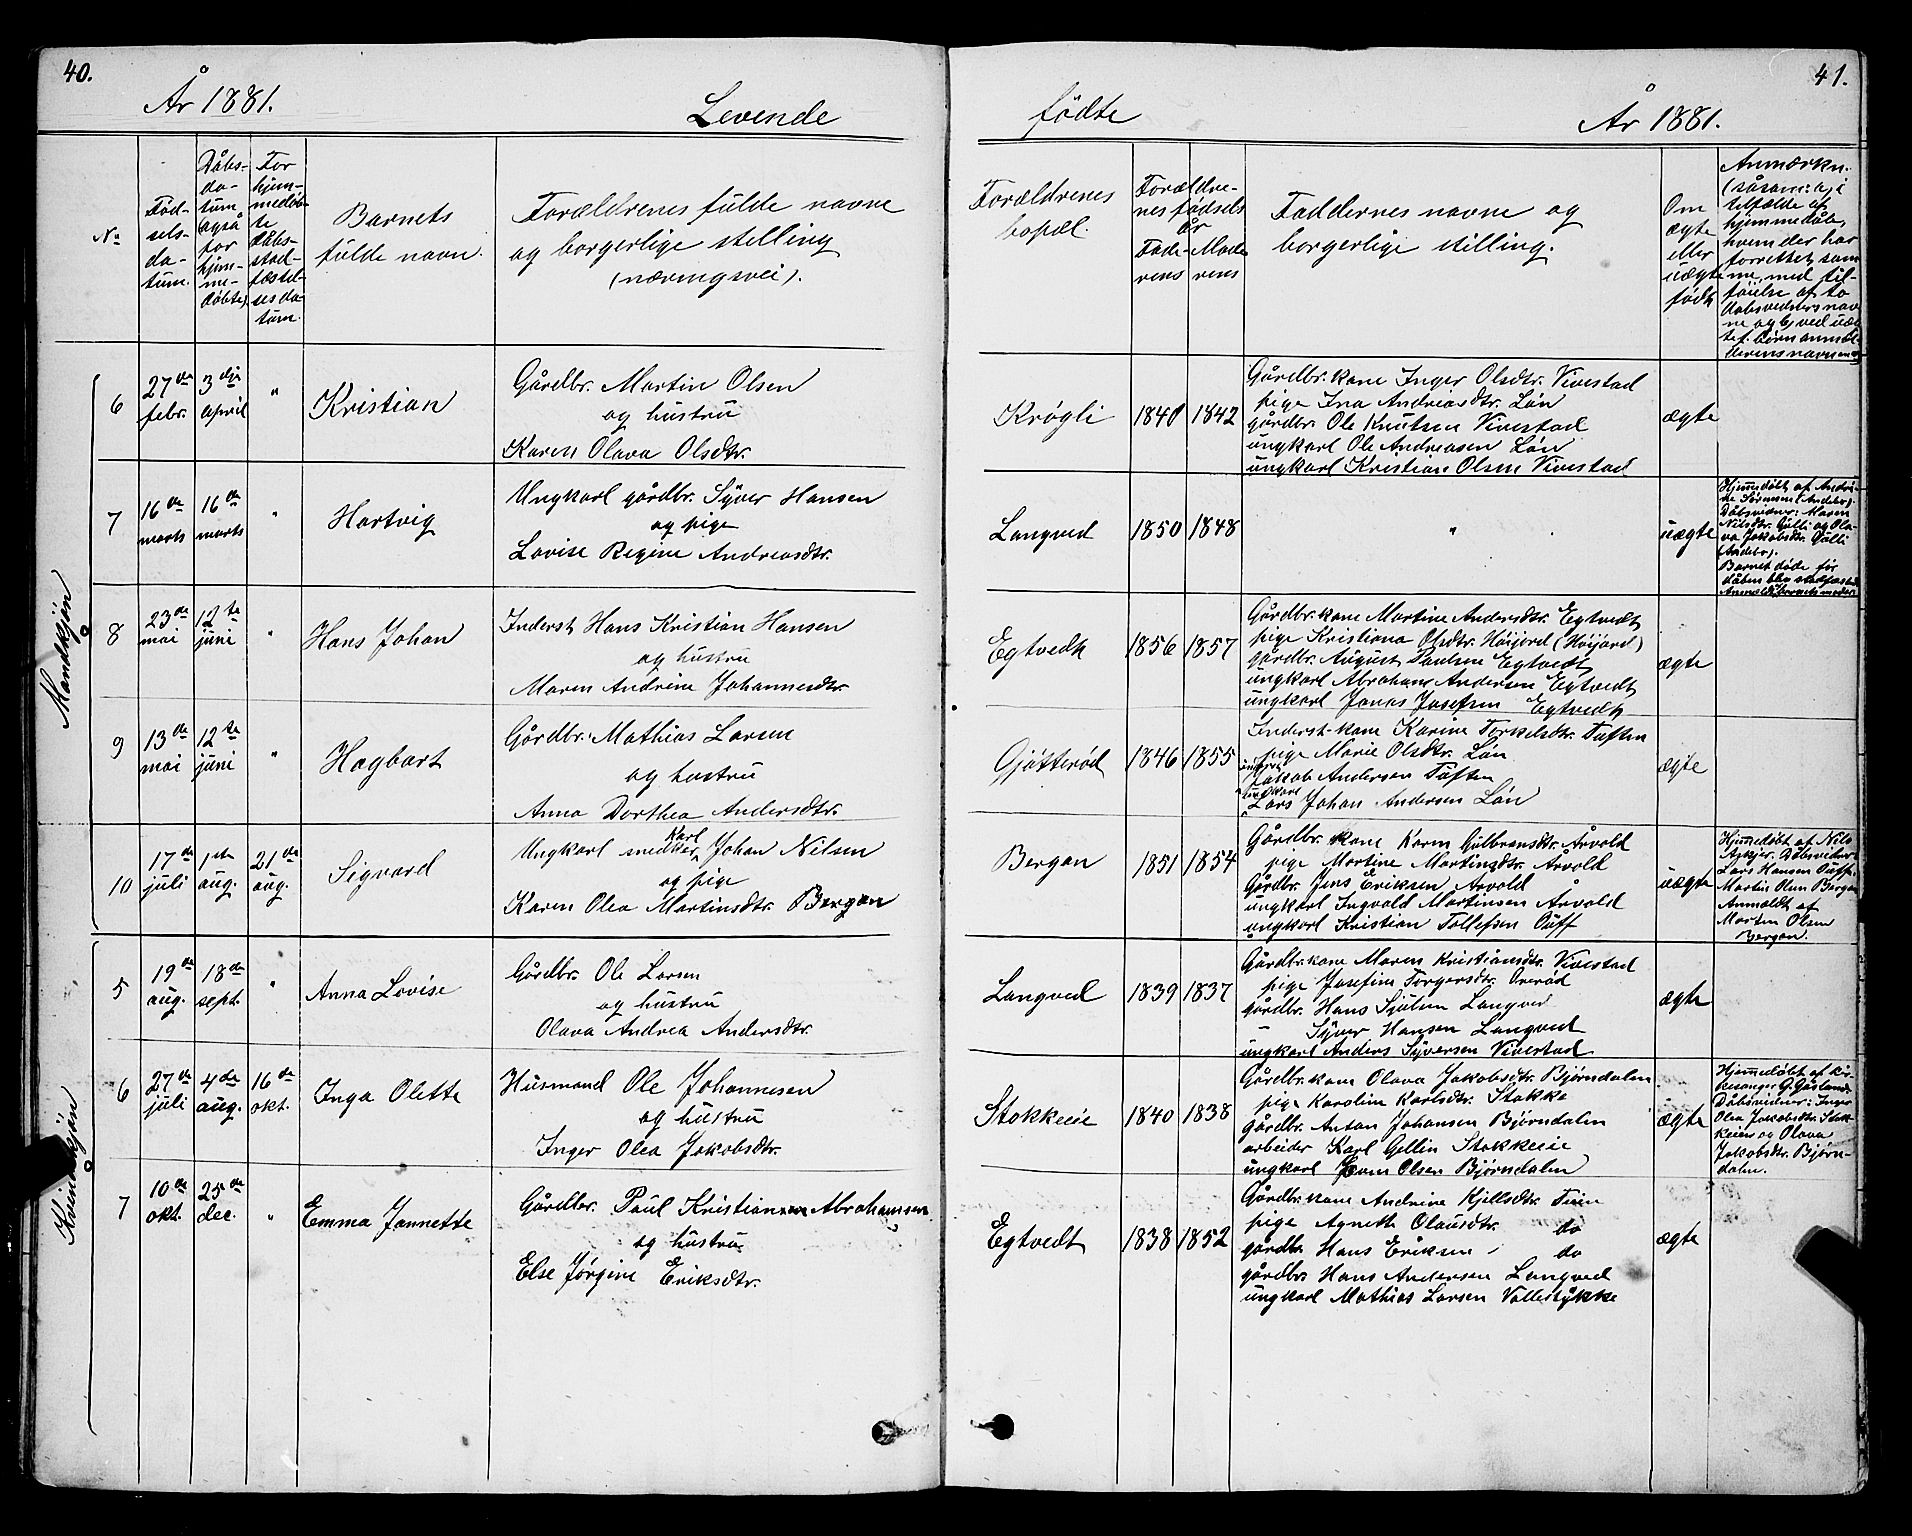 40.
År 1881.
Levende
No
Fød-
sels-
da-
tum.
Dåbs-
da-
tum
også
for
hjem-
me-
døbte.
For
hjem-
medøb-
te
dåbs-
stad-
fæstel-
ses da-
tum.
Barnets
fulde navn.
Forældrenes fulde navne
og borgerlige stilling
(næringsvei).
Mandkjøn
6
27de
febr.
3dje
april
"
Kristian
Gårdbr. Martin Olsen
og hustru
Karen Olava Olsdtr.
7
16de
marts
16de
marts
"
Hartvig
Ungkarl gårdbr. Syver Hansen
og pige
Lovise Regine Andreasdtr.
8
23de
mai
12te
juni
"
Hans Johan
Inderst Hans Kristian Hansen
og hustru
Maren Andrine Johannesdtr.
9
13de
mai
12te
juni
"
Hagbart
Gårdbr. Mathias Larsen
og hustru
Anna Dorthea Andersdtr.
10
17de
juli
1ste
aug.
21de
aug.
Sigvard
Karl
Ungkarl snedker Johan Nilsen
og pige
Karen Olea Martinsdtr. Bergan
Kvindekjøn
5
19de
aug.
18de
sept.
"
Anna Lovise
Gårdbr. Ole Larsen
og hustru
Olava Andrea Andersdtr.
6
27de
juli
4de
aug.
16de
okt.
Inga Olette
Husmand Ole Johannesen
og hustru
Inger Olea Jakobsdtr.
7
10de
okt.
25de
dec.
"
Emma Jannette
Gårdbr. Paul Kristiansen Abrahamsen
og hustru
Else Jørgine Eriksdtr.
41.
fødte
År 1881.
Forældrenes
bopæl.
Forældre-
nes fødsels
år
Fade-
rens
Mode
rens
Faddernes navne og
borgerlige stilling.
Om
ægte
eller
uægte
født
Anmærkn.
(såsom: a) i
tilfælde af
hjemmedåb,
hvem der har
forrettet sam
me, med til-
føielse af to
dåbsvidners nav
ne og b) ved uæg
tef. børn anmel-
derens navn
Krøgli
1840
1842
Gårdbr. kone Inger Olsdtr. Vivestad
pige Ina Andreasdtr. Løn
gårdbr. Ole Knutsen Vivestad
ungkarl Ole Andreasen Løn
ungkarl Kristian Olsen Vivestad
ægte
Langved
1850
1848
"
uægte
Hjemmedøbt af Andri-
ne Sørensen (Andebo).
Dåbsvidner: Maren
Nilsdtr. Gulli og Ola-
va Jakobsdtr. Gulli
(Andebo).
Barnet døde før
dåben blev stadfæstet
Anmeldt barnets moder
Egtvedt
1856
1857
Gårdbr. kone Martine Andersdtr. Egtvedt
pige Kristiana Olsdtr. Høijord (Høijord)
gårdbr. August Paulsen Egtvedt
ungkarl Abraham Andersen Egtvedt
ungkarl Jonas Josefsen Egtvedt
ægte
Gjøtterød
1846
1855
Inderst-kone Karine Torkelsdtr. Tuften
pige Marie Olsdtr. Løn
Jakob Andersen Tuften
ungkarl
Lars Johan Andersen Løn
ægte
Bergan
1851
1854
Gårdbr. kone Karen Gulbransdtr. Arvold
pige Martine Martinsdtr. Arvold
Gårdbr. Jens Eriksen Arvold
ungkarl Ingvald Martinsen Årvold
ungkarl Kristian Tollefsen Tuff
uægte
Hjemmedøbt af Nils
Askjer. Dåbsvidner
Lars Hansen Tuff.
Martin Olsen Bergan
Anmeldt af
Morten Olsen
Bergan.
Langved
1839
1837
Gårdbr. kone Maren Kristiansdtr. Vivestad
pige Josefine Torgersdtr. Overød
gårdbr. Hans Sjulsen Langved
– Syver Hansen Langved
ungkarl Anders Syversen Vivestad
ægte
Stokkeeie
1840
1838
Gårdbr. kone Olava Jakobsdtr. Bjørndalen
pige Karoline Karlsdtr. Stokke
Gårdbr. Anton Johansen Bjørndalen
arbeider Karl Gellin Stokkeeie
ungkarl Even Olsen Bjørndalen
ægte
Hjemmedøbt af kir-
kesanger G. Gåsland
Dåbsvidner: Inger
Olea Jakobsdtr. Stok-
keeie og Olava
Jakobsdtr. Bjørn-
dalen.
Egtvedt
1838
1852
Gårdbr. kone Andrine Kjellsdtr. Fein
pige Agnethe Olausdtr. do
gårdbr. Hans Eriksen do
gårdbr. Hans Andersen Langved
ungkarl Mathias Larsen Vallestykke
ægte